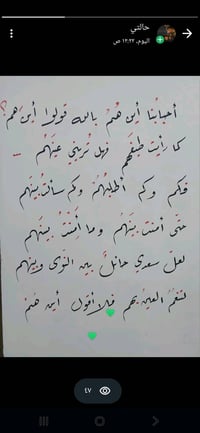 خالتي
اليوم، ١٢:٢٢ ص
أحبابُنا أين هُمُ بالله قولوا أين هم؟
كما رأيت طيفهم فهل تُريني عينَهُم
فكم وكم أطلبُهُم وكم سألتُ بينَهم
حتى أمنت بينَهُم وما أمِنْتُ بينهم
لعلّ سعدي حائلٌ بين النّوى وبينهم
لتنعَمُ العينُ بهم فلا أقول أين هُمُ
٤٧